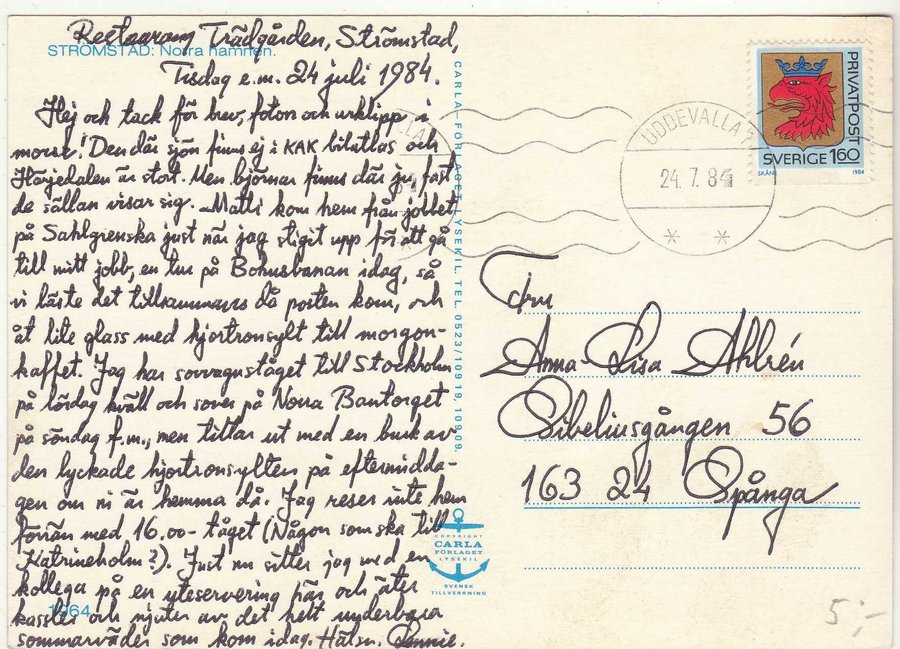 Restaurang Trädgården, Strömstad,
STRÖMSTAD: Norra hamnen.
Tisdag e.m. 24 juli 1984.
Hej och tack för brev, foton och urklipp i
morse! Den där sjön finns ej i KAK bilatlas och
Härjedalen är stort. Men björnar finns där ju fast
de sällan visar sig. Matti kom hem från jobbet
på Sahlgrenska just när jag stigit upp för att gå
till mitt jobb, en tur på Bohusbanan idag, så
vi läste det tillsammans då posten kom, och
åt lite glass med hjortronsylt till morgon-
kaffet. Jag har sovvagnståget till Stockholm
på lördag kväll och sover på Norra Bantorget
på söndag f.m., men tittar ut med en burk av
den lyckade hjortronsylten på eftermidda-
gen om ni är hemma då. Jag reser inte hem
förrän med 16.00-tåget (Någon som ska till
Katrineholm?). Just nu sitter jag med en
kollega på en uteservering här och äter
kassler och njuter av det helt underbara
sommarväder som kom idag. Hälsn.
1964
CARLA-FÖRLAGET LYSEKIL. TEL. 0523/10919, 10909.
COPYRIGHT
CARLA
FÖRLAGET
LYSEKIL
SVENSK
TILLVERKNING
UDDEVALLA
24.7.84
PRIVATPOST
SVERIGE 160
SKÅNE 1984
Fru
Anna-Lisa Ahlrén
Sibeliusgången 56
163 24 Spånga
5:-